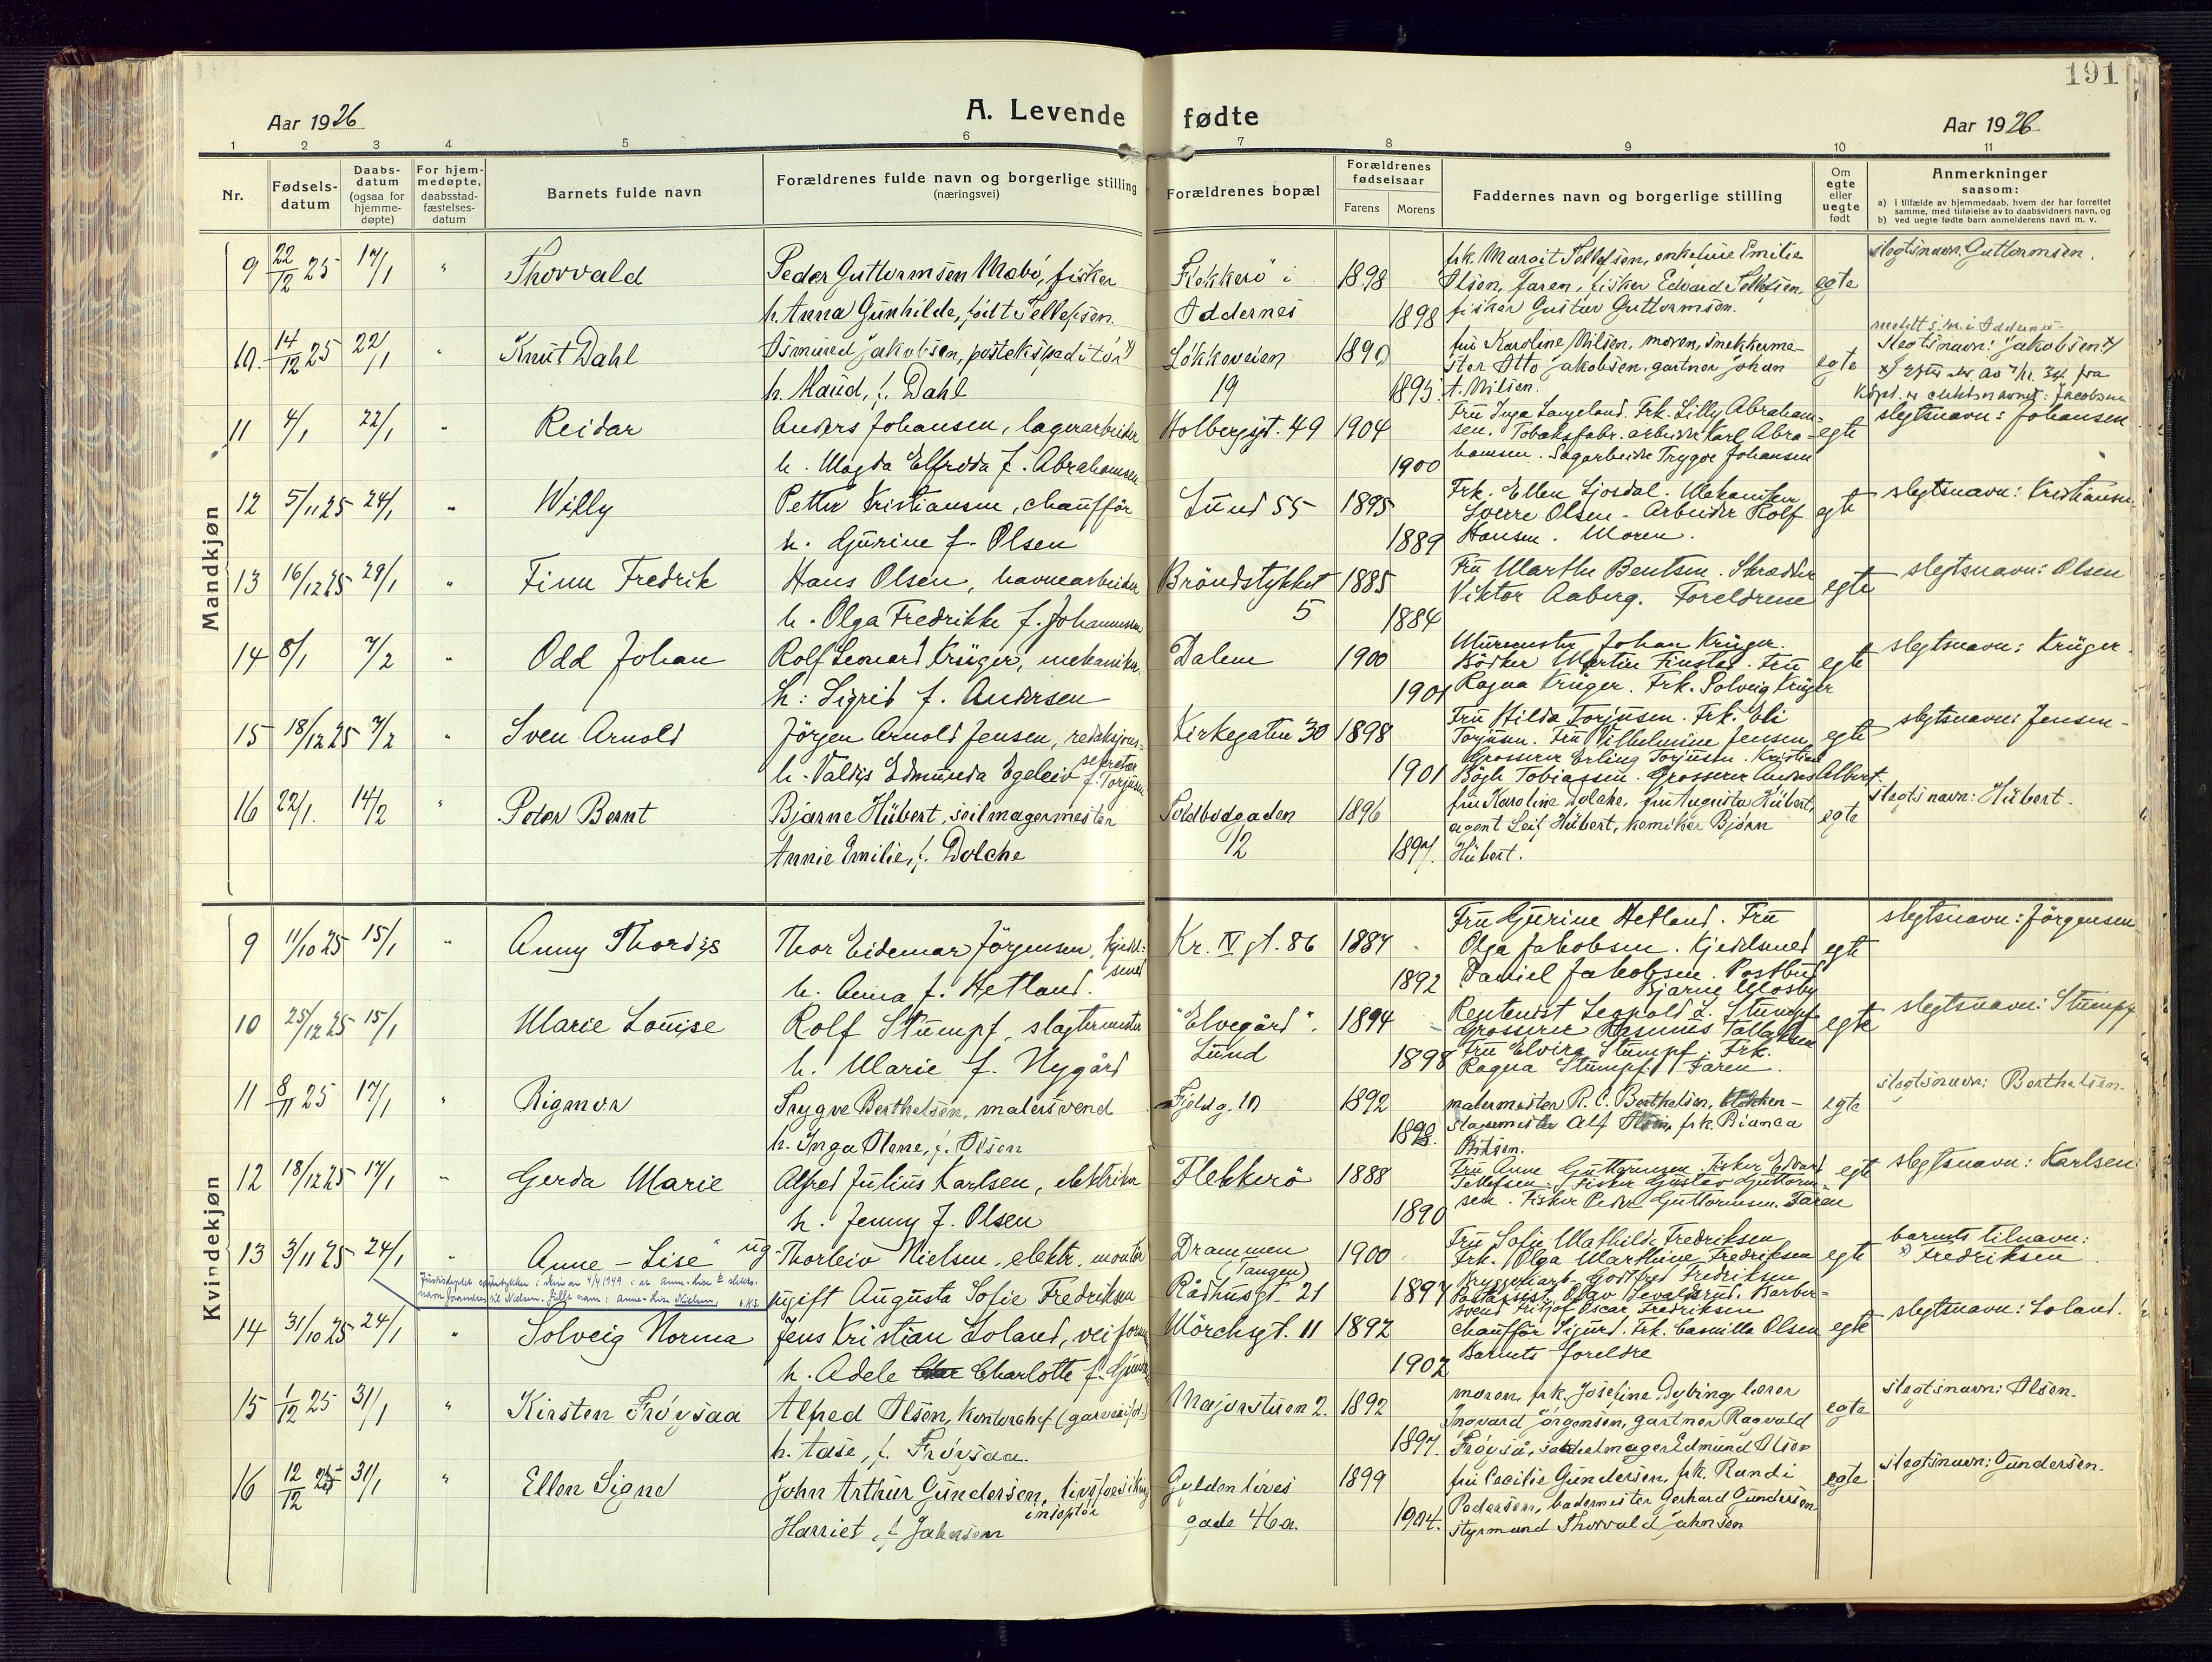 191
Aar 1926
A. Levende fødte
Aar 1926
1 2 3 4 5 6 7 8 9 10 11
Nr.
Fødsels-
datum
Daabs-
datum
(ogsaa for
hjemme-
døpte)
For hjem-
medøpte,
daabsstad-
fæstelses-
datum
Barnets fulde navn
Forældrenes fulde navn og borgerlige stilling
(næringsvei)
Forældrenes bopæl
Forældrenes
fødselsaar
Farens Morens
Faddernes navn og borgerlige stilling
Om
egte
eller
uegte
født
Anmerkninger
saasom:
a) i tilfælde av hjemmedaab, hvem der har forrettet
samme, med tilføielse av to daabsvidners navn, og
b) ved uegte fødte barn anmelderens navn m. v.
Mandkjøn
9 22/12 25 17/1 " Thorvald
Peder Guttormsen Mæbø, fisker
h. Anna Gunhilde, født Tellefsen.
Flekkerö i
Oddernes
1898
1898
frk. Margit Tellefsen, enkefrue Emilie
Olsen, Faren, fisker Edvard Tellefsen,
fisker Gustav Guttormsen.
egte
slegtsnavn: Guttormsen.
10. 14/12 25 22/1 " Knut Dahl
Osmund Jakobsen, postekspeditör x)
h. Maud, f. Dahl
Løkkeveien
19
1890
1895.
fru Karoline Nilsen, moren, snekkerme-
ster Otto Jakobsen, gartner Johan
A. Nilsen.
egte
meldt s.m. i Oddernes
slegtsnavn: Jakobsen x)
11 4/1 22/1 " Reidar
Anders Johansen, lagerarbeider
h. Magda Elfrida f. Abrahamsen
Holbergsgt. 49
1904
1900
Fru Inga Langeland. Frk. Lilly Abraham-
sen. Tobaksfabr. arbeider Karl Abra-
hamsen. Sagarbeider Trygve Johansen
egte
slegtsnavn: Johansen
12 5/11 25 24/1 " Willy
Petter Kristiansen, chauffør
h. Gurine f. Olsen
Lund 55
1895
1889
Frk. Ellen Ljosdal. Mekaniker
Sverre Olsen - Arbeider Rolf
Hansen. Moren.
egte
slegtsnavn: Kristiansen.
13 16/12 25 29/1 " Finn Fredrik
Hans Olsen, havnearbeider
h. Olga Fredrikke f. Johannessen
Bröndstykket
5
1885
1884
Fru Marthe Bentsen. Skrædder
Viktor Aaberg. Foreldrene
egte
slegtsnavn: Olsen
14 8/1 7/2 " Odd Johan
Rolf Leonard Krüger, mekaniker.
h: Sigrid f. Andersen
Dalen
1900
1901
Murmester Johan Krüger.
Bödker Martin Finstad. Fru
Ragna Krüger. Frk. Solveig Krüger
egte
slegtsnavn: Krüger.
15 18/12 25 7/2 " Sven Arnold
Jörgen Arnold Jensen, redaksjons-
sekretær
h. Valdis Edmunda Egeleiv f. Torjusen
Kirkegaten 30
1898
1901
Fru Hilda Torjusen. Frk. Eli
Torjusen. Fru Vilhelmine Jensen
Grosserer Erling Torjusen. Kristian
Bögh Tobiassen. Grosserer Anders Albert.
egte
slegtsnavn: Jensen -
16 22/1. 14/2 " Peter Bernt
Bjarne Hübert, seilmagermester
Annie Emilie, f. Dolche
Toldbodgaden
12
1896
1897.
fru Karoline Dolche, fru Augusta Hübert,
agent Leif Hübert, kemiker Bjørn
Hübert.
egte
slegtsnavn: Hübert.
Kvindekjøn
9 11/10 25 15/1 " Anny Thordis
Thor Eidemar Jörgensen, kjedel-
smed
h. Anna f. Hetland.
Kr. IV gt. 86
1884
1892
Fru Gurine Hetland. Fru
Olga Jakobsen. Kjedelsmed
Daniel Jakobsen. Postbud
Bjarne Mosby
egte
slegtsnavn: Jörgensen
10 25/12 25 15/1 Marie Louise
Rolf Stumpf, slagtermester
h. Marie f. Nygård
"Elvegård".
Lund
1894
1898
Rentenist Leopold L. Stumpf
Grosserer Rasmus Tallaksen
Fru Elvira Stumpf. Frk.
Ragna Stumpf. Faren.
egte
slegtsnavn: Stumpf
11 8/11 25 17/1 " Rigmor
Trygve Berthelsen, malersvend
h. Inga Olene, f. Olsen
Fjeldg. 10
1892
1898.
malermester R. C. Berthelsen,
Alf Olsen, frk. Bianca
egte
slegtsnavn: Berthelsen.
12 18/12 25 17/1 " Gerda Marie
Alfred Julius Karlsen, elektriker
h. Jenny f. Olsen
Flekkerö
1888
1890
Fru Anne Guttormsen. Fisker Edvard
Tellefsen. Fisker Gustav Guttorm-
sen. Fisker Peder Guttormsen. Faren
egte
slegtsnavn: Karlsen
13 3/11 25 24/1 " Anne-Lise
ug. Thorleiv Nielsen, elektr. montör
ugift Augusta Sofie Fredriksen
Drammen
(Tangen)
Rådhusgt. 21
1900
1897
Fru Sofie Mathilde Fredriksen
Frk. Olga Marthine Fredriksen
Bryggeriarb. Godtfred Fredriksen
Postassist. Olav Barber-
svend Fritjof Oscar Fredriksen
egte
barnets tilnavn:
x) Fredriksen
14 31/10 25 24/1 " Solveig Norma
Jens Kristian Loland, veiformann
h. Adele Charlotte f.
Mörchsgt. 11
1892
1902
Chauffør Sigurd. Frk. Camilla Olsen
Barnets foreldre
egte
slegtsnavn: Loland.
15 1/12 25 31/1 " Kirsten Frøysaa
Alfred Olsen, kontorchef
h. Aase, f. Frøysaa.
Majorstuen 2.
1892
1897.
moren, frk. Josefine Dybing, lærer
Ingvard Jörgensen, gartner Ragvald
Frøyså, sadelmager Edmund Olsen
egte
slegtsnavn: Olsen.
16 12/12 25 31/1 " Ellen Signe
John Arthur Gundersen, livsforsikring
inspektör
Harriet, f. Jahnsen
Gyldenløves
gade 46a.
1899
1904.
fru Cecilie Gundersen, frk. Randi
Pedersen, bademester Gerhard Gundersen
styrmand Thorvald Jahnsen
egte
slegtsnavn: Gundersen.